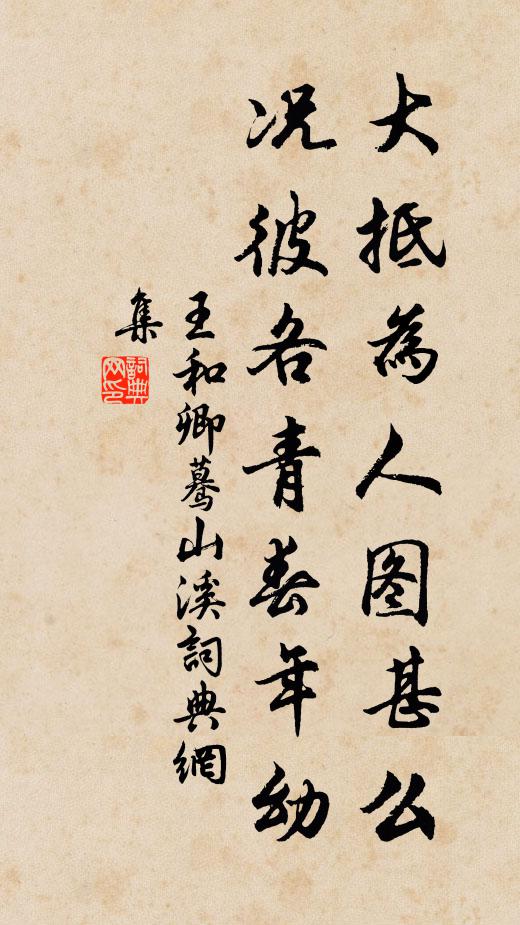 大抵為人图甚么
况彼各青春年幼
王和卿蓦山溪詞典網
集
詞典
网印